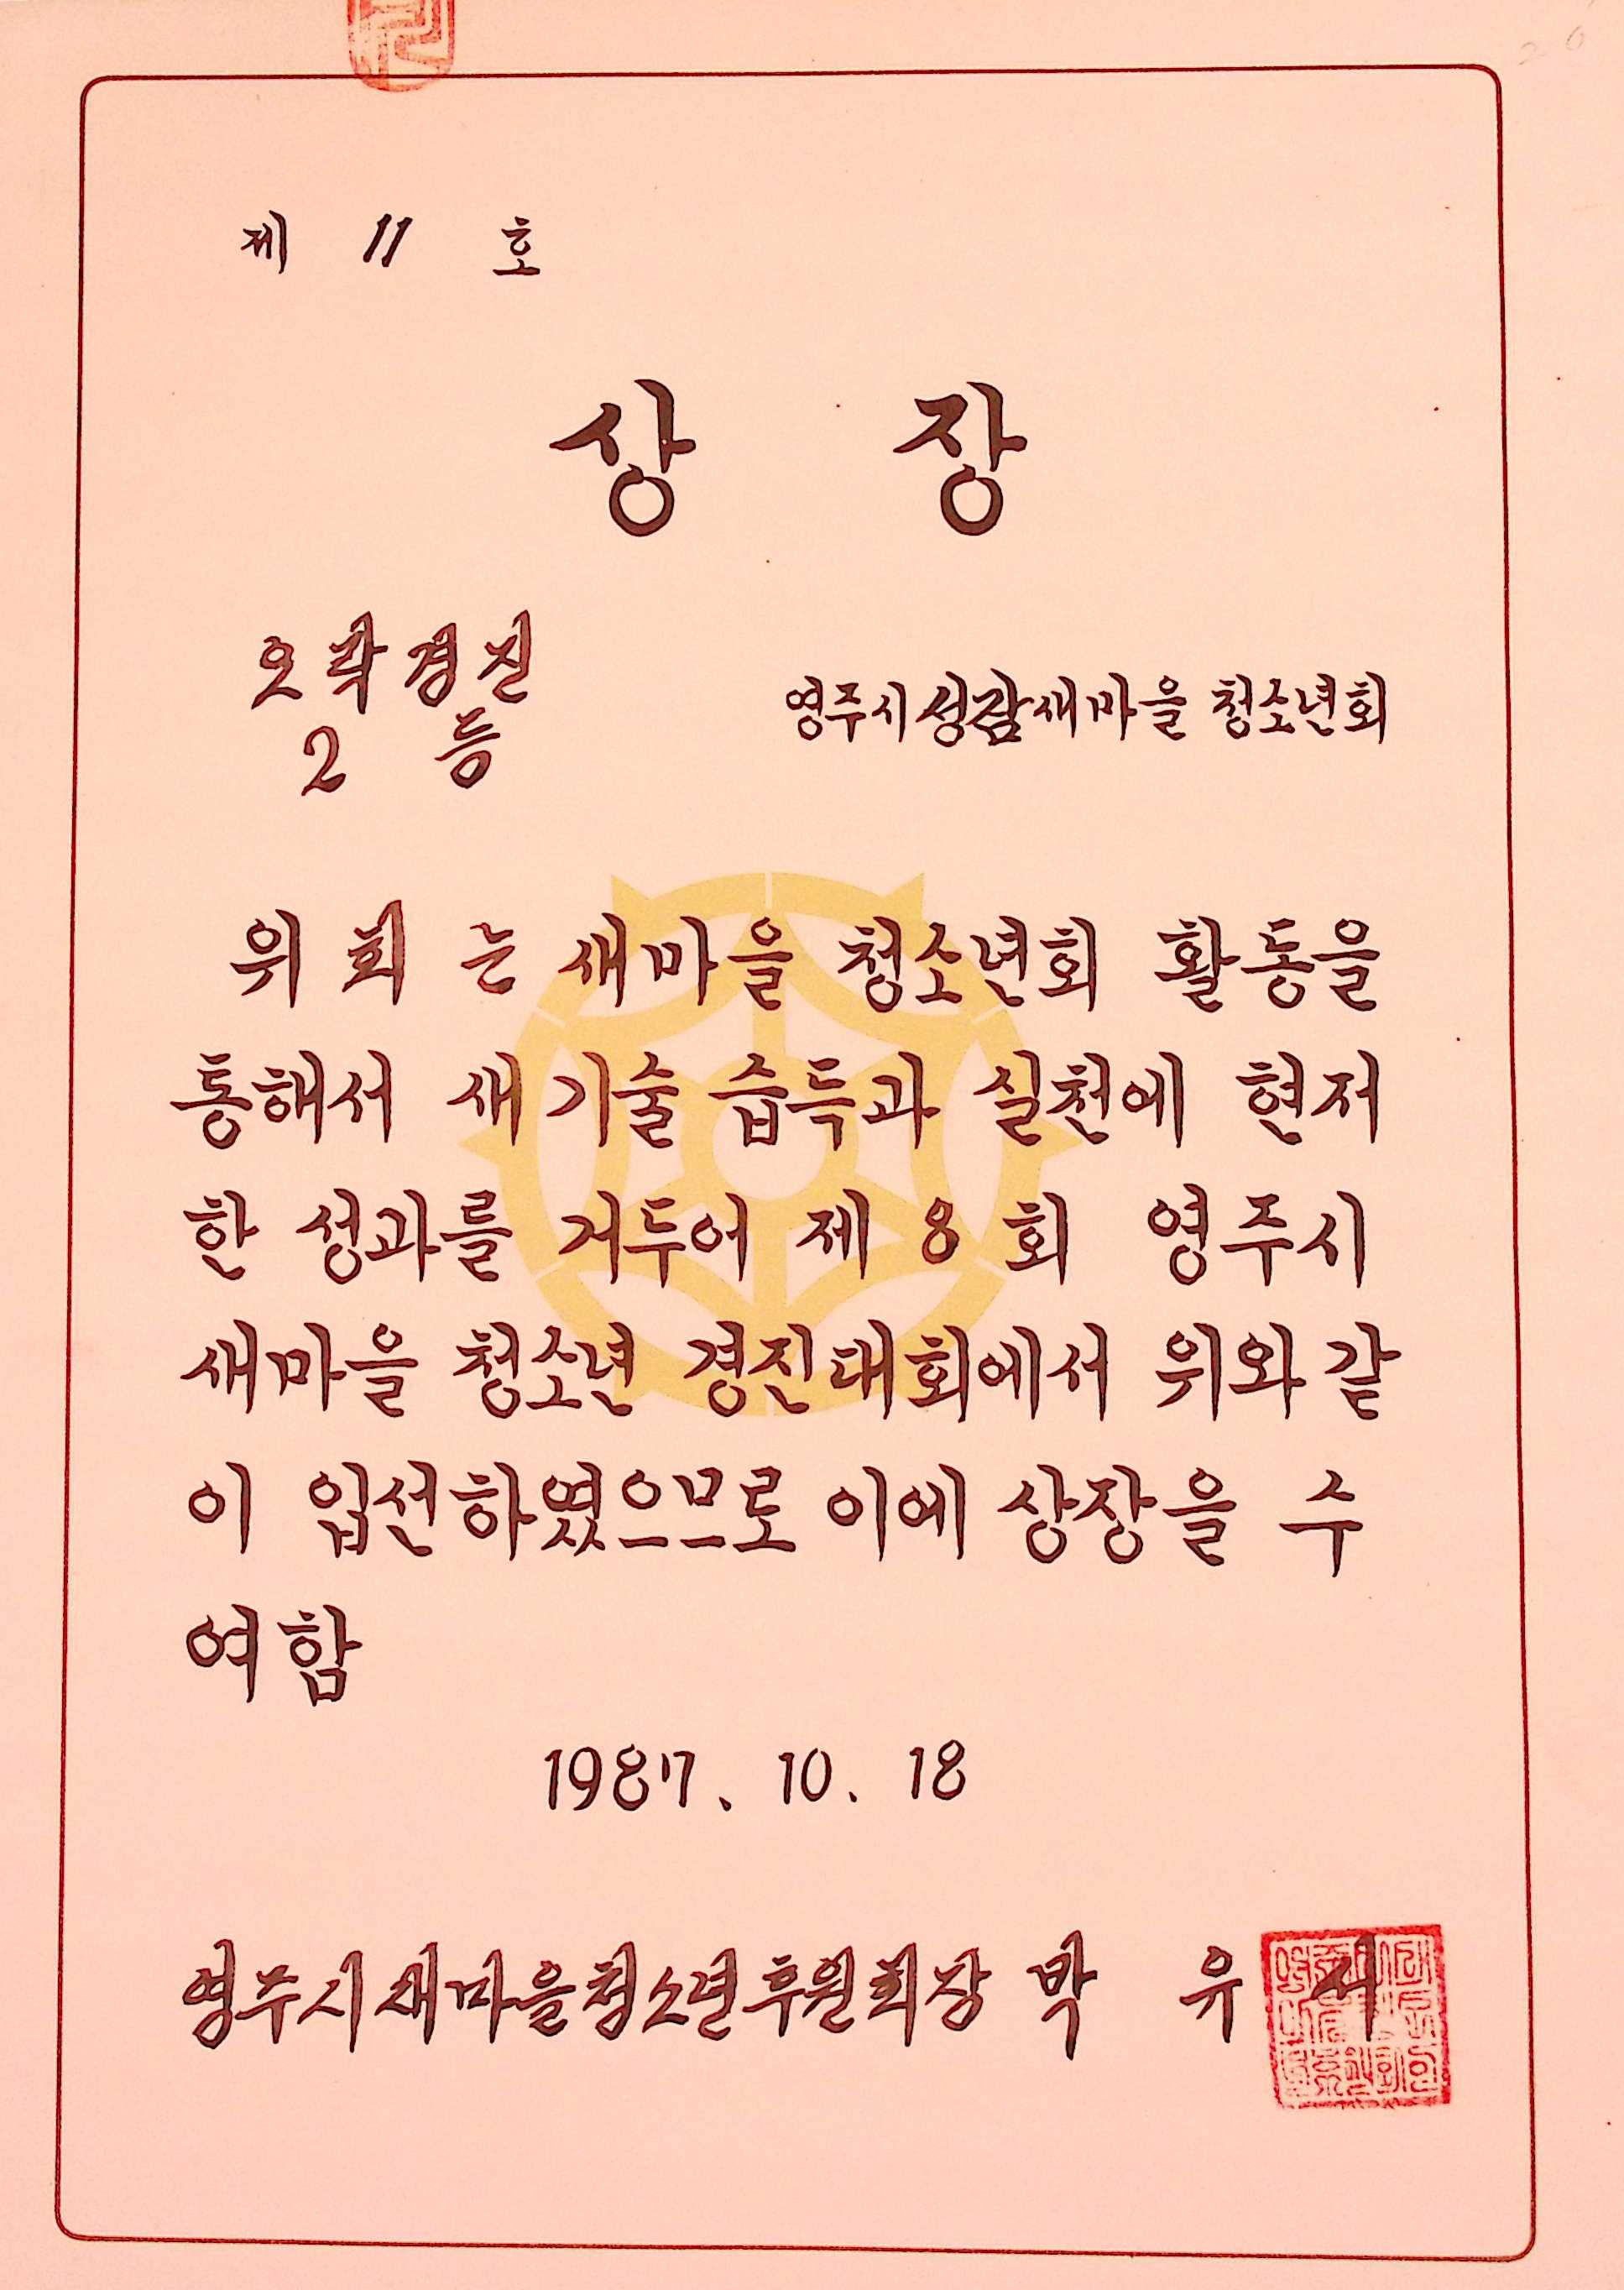 제 11 호
상 장
오락경진
2 등
영주시성잠새마을 청소년회
위 회 는 새마을 청소년회 활동을
통해서 새기술 습득과 실천에 현저
한 성과를 거두어 제 8 회 영주시
새마을 청소년 경진대회에서 위와 같
이 입선하였으므로 이에 상장을 수
여함
1987. 10. 18
영주시새마을청소년후원회장 박 유 서